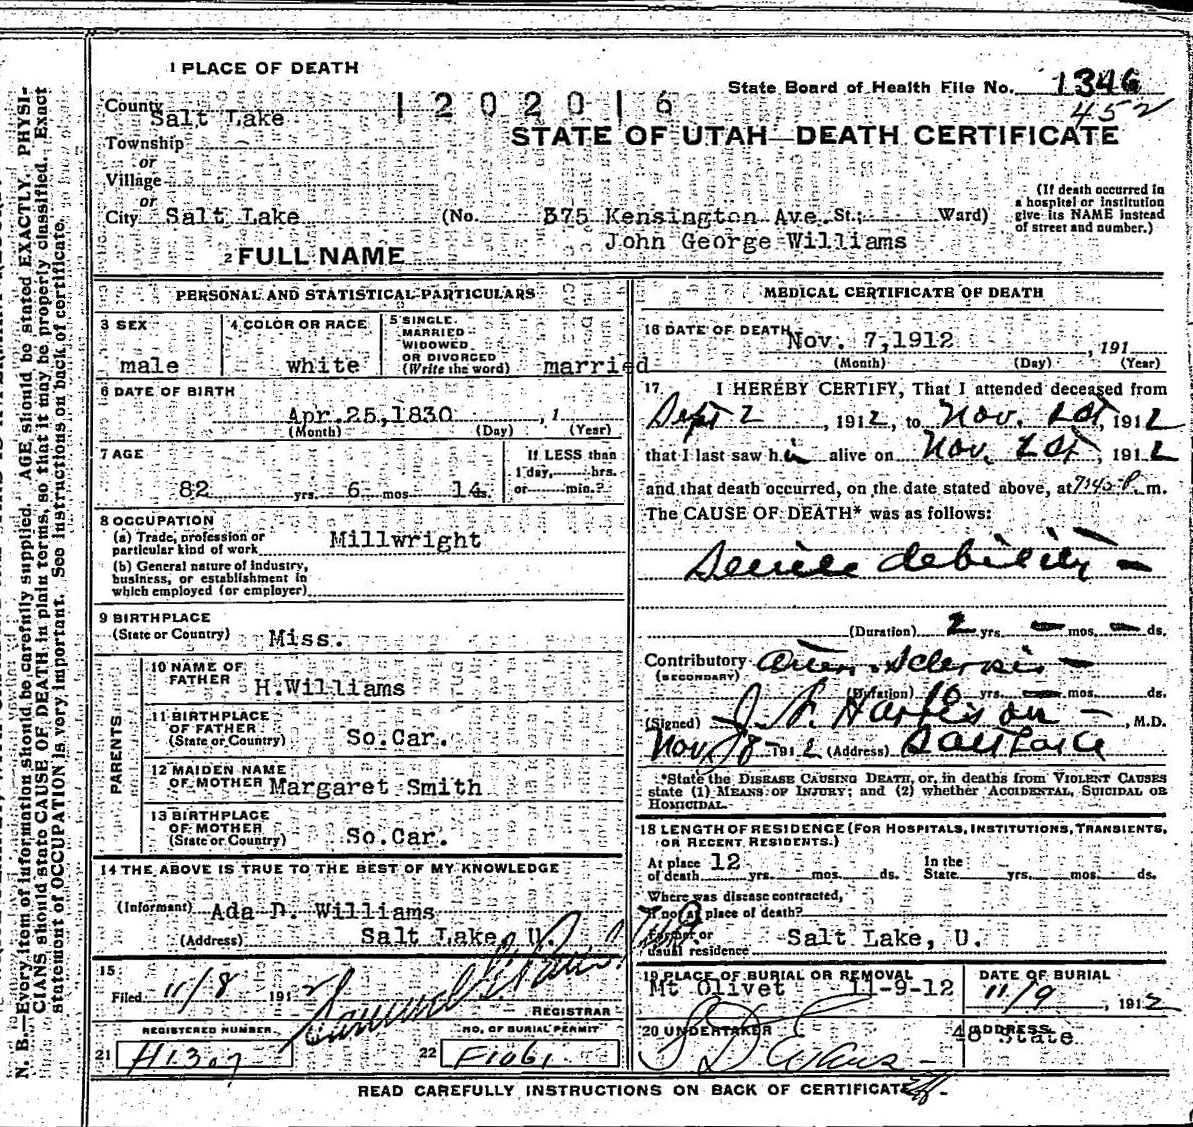 1 PLACE OF DEATH
State Board of Health File No. 1346
452
1202016
County Salt Lake
STATE OF UTAH—DEATH CERTIFICATE
Township
or
Village
or
City Salt Lake (No. 375 Kensington Ave. St.; Ward)
(If death occurred in a hospital or institution give its NAME instead of street and number.)
2 FULL NAME John George Williams
PERSONAL AND STATISTICAL PARTICULARS
3 SEX
male
4 COLOR OR RACE
white
5 SINGLE MARRIED WIDOWED OR DIVORCED (Write the word) married
6 DATE OF BIRTH
Apr.25,1830 , 1
(Month) (Day) (Year)
7 AGE
82 yrs. 6 mos 14 ds.
If LESS than 1 day, hrs. or min.?
8 OCCUPATION
(a) Trade, profession or particular kind of work Millwright
(b) General nature of industry, business, or establishment in which employed (or employer)
9 BIRTHPLACE
(State or Country) Miss.
PARENTS
10 NAME OF FATHER H.Williams
11 BIRTHPLACE OF FATHER (State or Country) So.Car.
12 MAIDEN NAME OF MOTHER Margaret Smith
13 BIRTHPLACE OF MOTHER (State or Country) So.Car.
14 THE ABOVE IS TRUE TO THE BEST OF MY KNOWLEDGE
(Informant) Ada D. Williams
(Address) Salt Lake, U.
15
Filed 11/8 1912
REGISTRAR
REGISTERED NUMBER
21 H1307
NO. OF BURIAL PERMIT
22 F1061
MEDICAL CERTIFICATE OF DEATH
16 DATE OF DEATH Nov. 7,1912 , 191
(Month) (Day) (Year)
17 I HEREBY CERTIFY, That I attended deceased from
Sept 2 , 1912, to Nov. 1st, 1912
that I last saw him alive on Nov. 1st, 1912
and that death occurred, on the date stated above, at 7:45 P. m.
The CAUSE OF DEATH* was as follows:
Senile debility —
(Duration) 2 yrs. — mos. — ds.
Contributory (SECONDARY) Arter. Sclerosis —
(Duration) 10 yrs. — mos. ds.
(Signed) , M.D.
Nov. 8 - 1912 (Address) Salt Lake
*State the DISEASE CAUSING DEATH, or, in deaths from VIOLENT CAUSES
state (1) MEANS OF INJURY; and (2) whether ACCIDENTAL, SUICIDAL OR
HOMICIDAL.
18 LENGTH OF RESIDENCE (FOR HOSPITALS, INSTITUTIONS, TRANSIENTS, OR RECENT RESIDENTS.)
At place of death 12 yrs. mos. ds. In the State yrs. mos. ds.
Where was disease contracted, if not at place of death?
Former or usual residence Salt Lake, U.
19 PLACE OF BURIAL OR REMOVAL
Mt Olivet 11-9-12
DATE OF BURIAL
11/9 , 1912
20 UNDERTAKER
S D Evans
ADDRESS
48 State
READ CAREFULLY INSTRUCTIONS ON BACK OF CERTIFICATE
N. B.—Every item of information should be carefully supplied. AGE should be stated EXACTLY. PHYSI-
CIANS should state CAUSE OF DEATH in plain terms, so that it may be properly classified. Exact
statement of OCCUPATION is very important. See instructions on back of certificate.